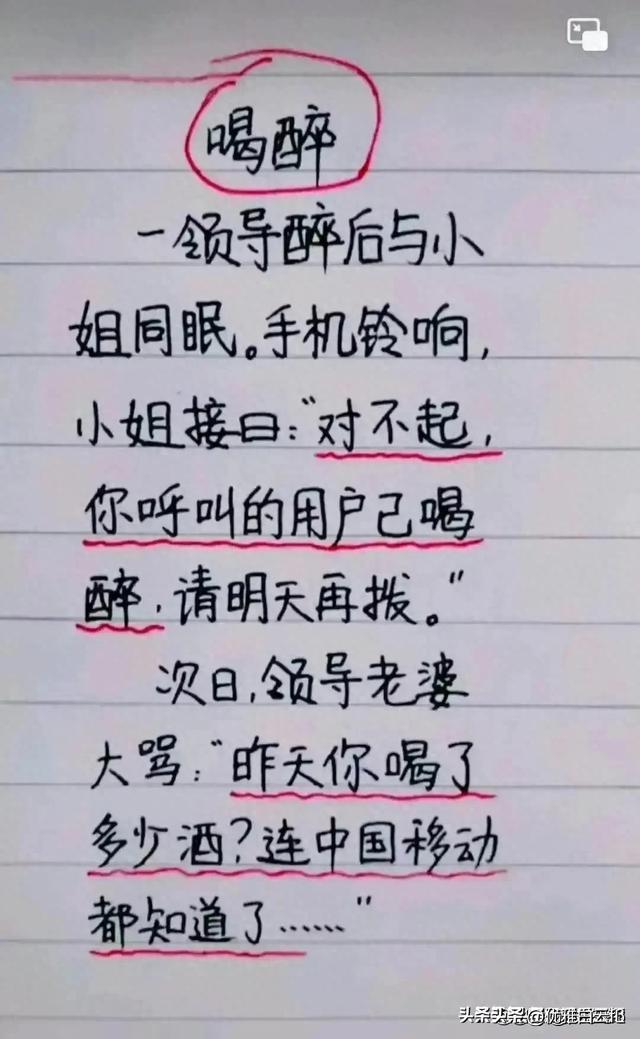 喝醉
一领导醉后与小
姐同眠。手机铃响，
小姐接曰：“对不起，
你呼叫的用户己喝
醉，请明天再拨。”
次日，领导老婆
大骂：“昨天你喝了
多少酒？连中国移动
都知道了……”
头条 @优雅白云